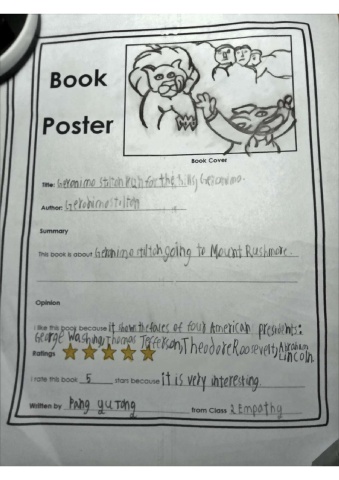 Book
Poster
Book Cover
Title: Geronimo Stilton Run for the hills, Geronimo.
Author: Geronimo Stilton
Summary
This book is about Geronimo stilton going to Mount Rushmore.
Opinion
I like this book because it shows the faces of four American presidents:
George Washing, Thomas Jefferson, Theodore Roosevelt, Abraham Lincoln
Ratings
I rate this book 5 stars because it is very interesting.
Written by Pang Yu Tong from Class 2 Empathy